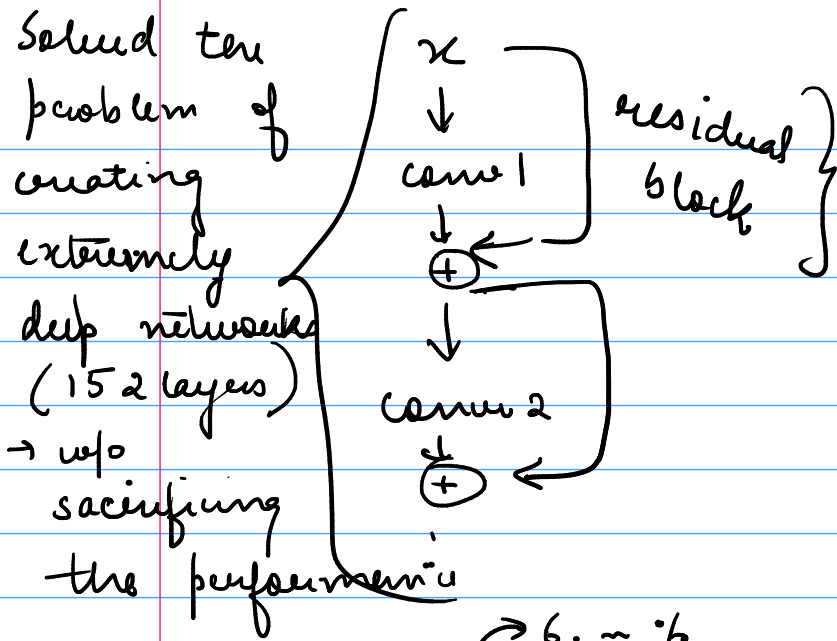 Solved the
problem of
creating
extremely
deep networks
(152 layers)
→ w/o
sacrificing
the performance
x
↓
conv 1
↓
+
↓
conv 2
↓
+
residual
block